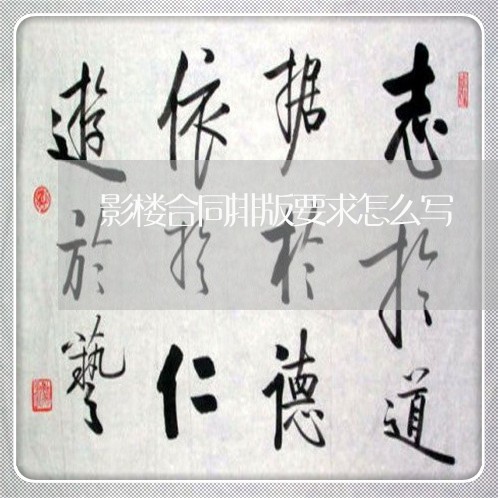 志於道
据於德
依於仁
遊於藝
影楼合同排版要求怎么写